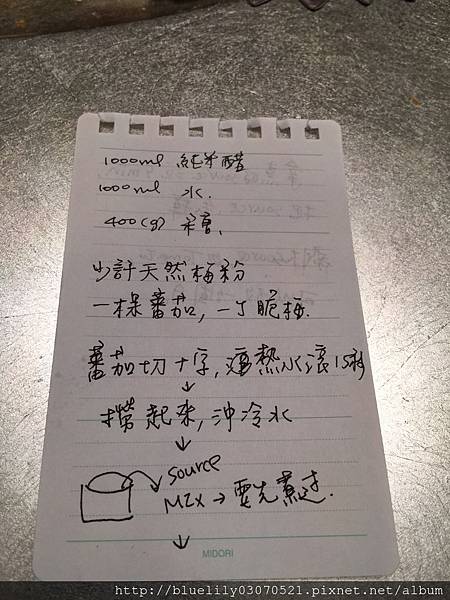 1000ml 純米醋
1000ml 水.
400(g) 糖.
少許天然梅粉
一棵蕃茄, 一丁脆梅.
蕃茄切十字, 燙熱水滾15秒
↓
撈起來, 沖冷水
↓
source
MIX → 要先煮过.
↓
MIDORI
http://bluelily03070521.pixnet.net/album